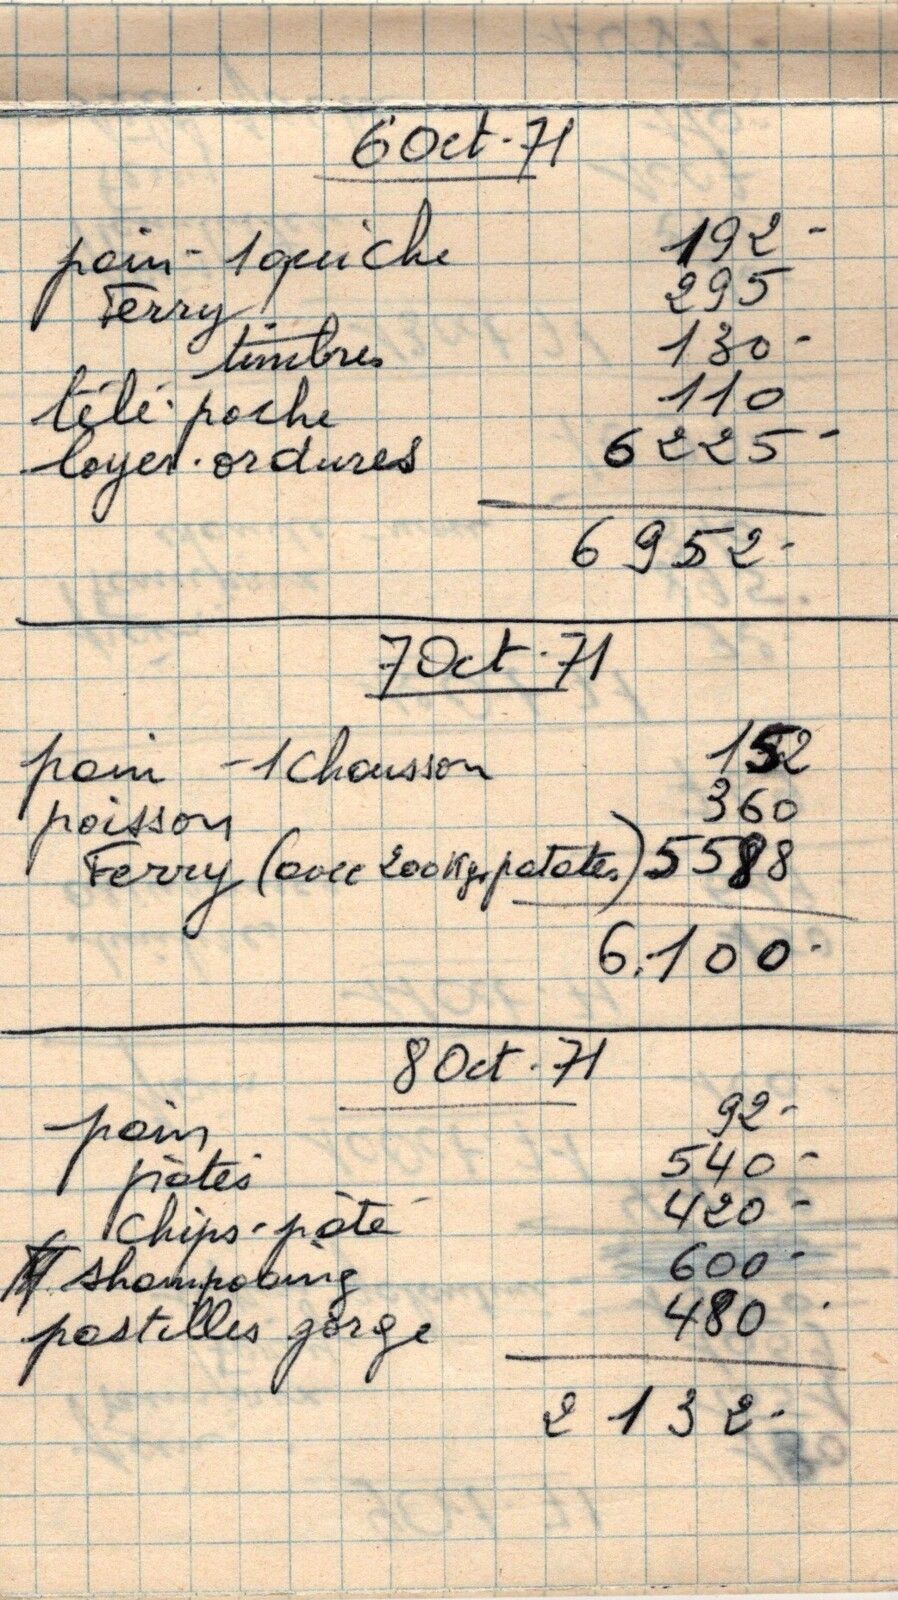 6 Oct. 71
pain - 1 quiche 192 -
Ferry 295
timbres 130 -
télé. poche 110
loyer. ordures 6225 -
6952 -
7 Oct. 71
pain - 1 chausson 152
poisson 360
Ferry (avec 200 Kgs patates) 5588
6.100 -
8 Oct. 71
pain 92 -
pâtes 540 -
Chips - pâté 420 -
shampooing 600 -
pastilles gorge 480
2132 -